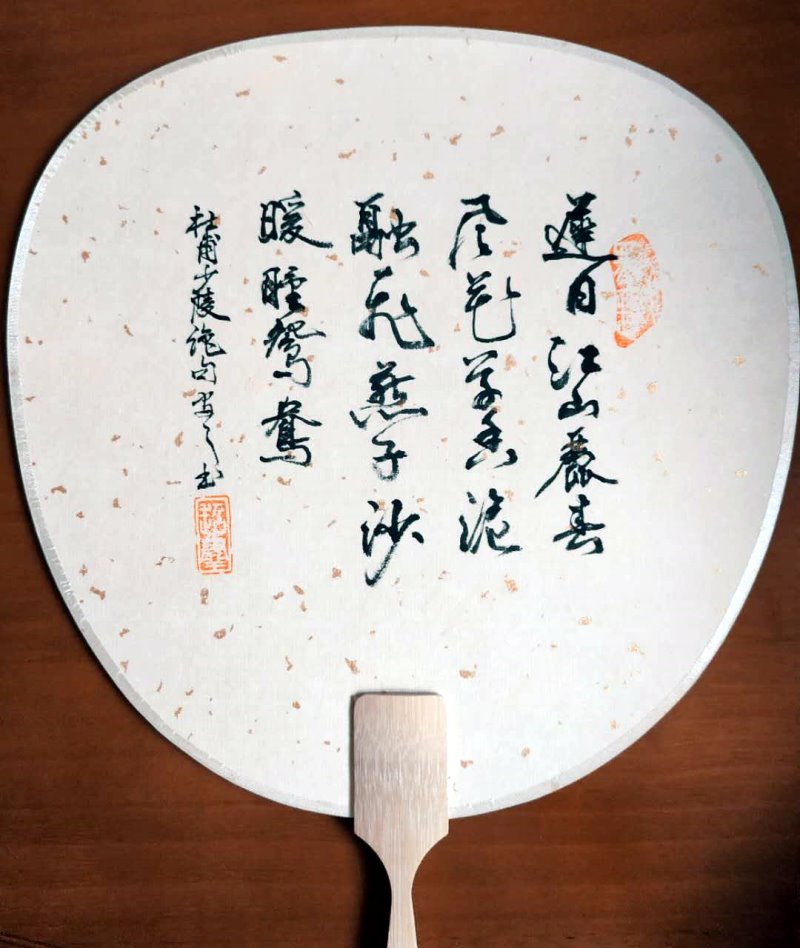 遲日江山麗春
風花草香泥
融飛燕子沙
暖睡鴛鴦
杜甫少陵絶句之书